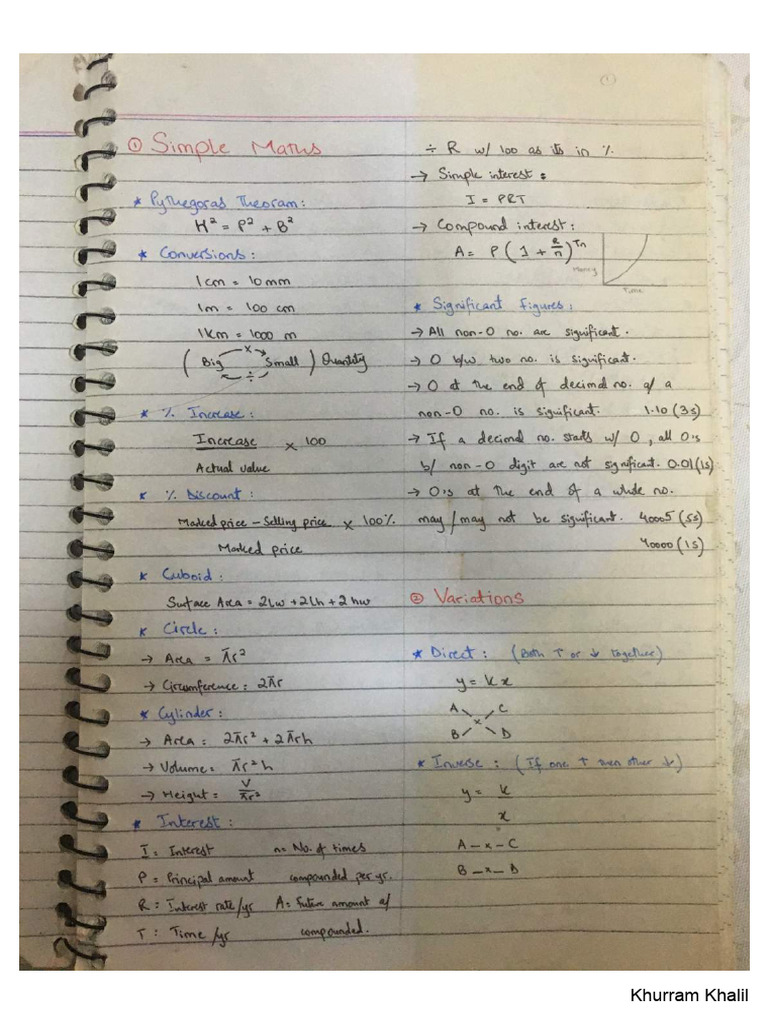 ①
① Simple Maths
* Pythegoras Theoram:
H² = P² + B²
* Conversions:
1cm = 10mm
1m = 100 cm
1km = 1000 m
x
( Big Small ) Quantity
÷
* % Increase:
Increase × 100
Actual value
* % Discount:
Marked price - Selling price × 100%
Marked price
* Cuboid:
Surface Area = 2lw + 2lh + 2hw
* Circle:
→ Area = πr²
→ Circumference = 2πr
* Cylinder:
→ Area = 2πr² + 2πrh
→ Volume = πr²h
→ Height = V/πr²
* Interest:
I = Interest n = No. of times
P = Principal amount compounded per yr.
R = Interest rate/yr A = Future amount a/
T = Time/yr compounded.
÷ R w/ 100 as its in %
→ Simple interest:
I = PRT
→ Compound interest:
A = P(1 + R/n)ᵀⁿ
Money
Time
* Significant Figures:
→ All non-0 no. are significant.
→ 0 b/w two no. is significant.
→ 0 at the end of decimal no. a/ a
non-0 no. is significant. 1.10 (3s)
→ If a decimal no. starts w/ 0, all 0's
b/ non-0 digit are not significant. 0.01 (1s)
→ 0's at the end of a whole no.
may/may not be significant. 40005 (5s)
40000 (1s)
② Variations
* Direct: (Both ↑ or ↓ together)
y = kx
A C
x
B D
* Inverse: (If one ↑ then other ↓)
y = k
x
A - x - C
B - x - D
Khurram Khalil